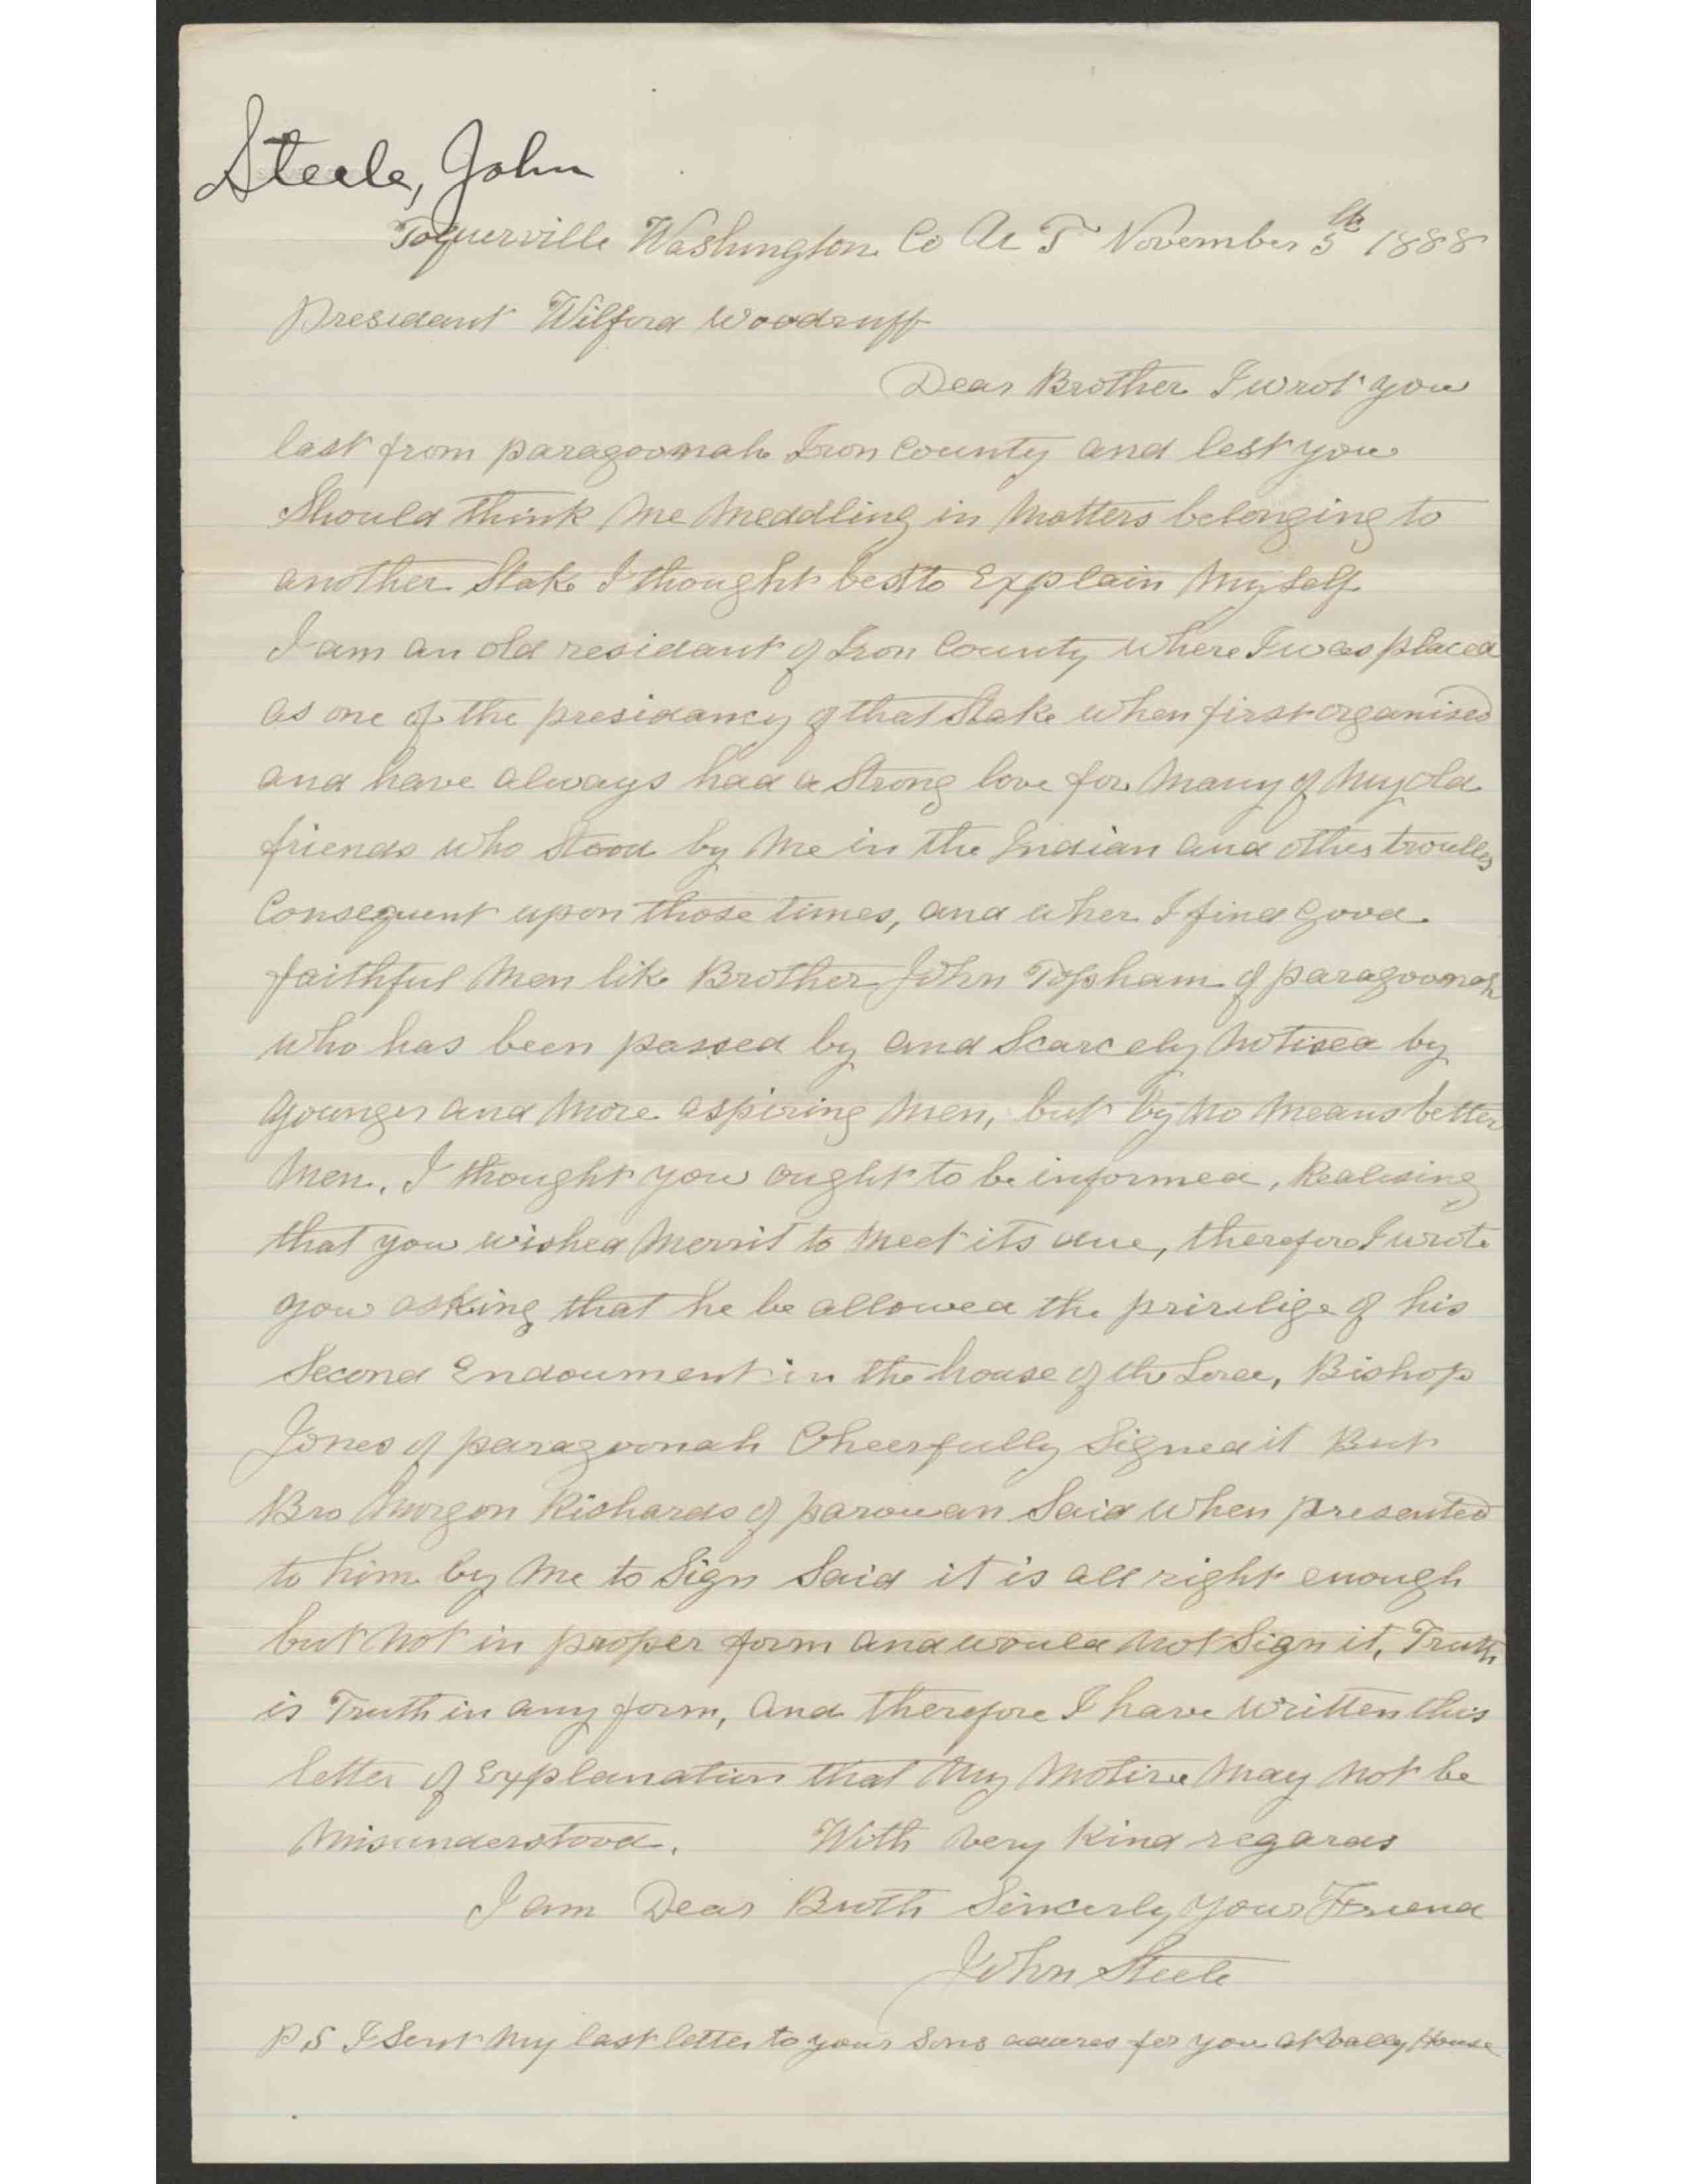 Steele, John
Toquerville Washington Co U T November 5th 1888
Presedent Wilford Woodruff
Dear Brother I wrot you
last from paragoonah Iron County and lest you
Should think me meddling in matters belonging to
another Stake I thought best to Explain my Self
I am an old resident of Iron County where I was placed
as one of the presidancy of that Stake when first organised
and have always had a Strong love for many of my old
friends who Stood by me in the Indian and other troubles
Consequent upon those times, and when I find good
faithful men like Brother John Topham of paragoonah
who has been passed by and Scarcely Notised by
younger and more aspiring men, but by no means better
men, I thought you ought to be informed, Realising
that you wished merrit to meet its due, therefore I wrote
you asking that he be allowed the privilige of his
Second Endoument in the house of the Lord, Bishop
Jones of paragoonah Cheerfully Signed it But
Bro Morgan Richards of parowan Said when presented
to him by me to Sign Said it is all right enough
but not in proper form and would not Sign it, Truth
is Truth in any form, and therefore I have written this
letter of Explanation that my motive may not be
misunderstood. With very Kind regards
I am Dear Broth Sincerly your Friend
John Steele
P S I Sent my last letter to your Sons addres for you at vally House